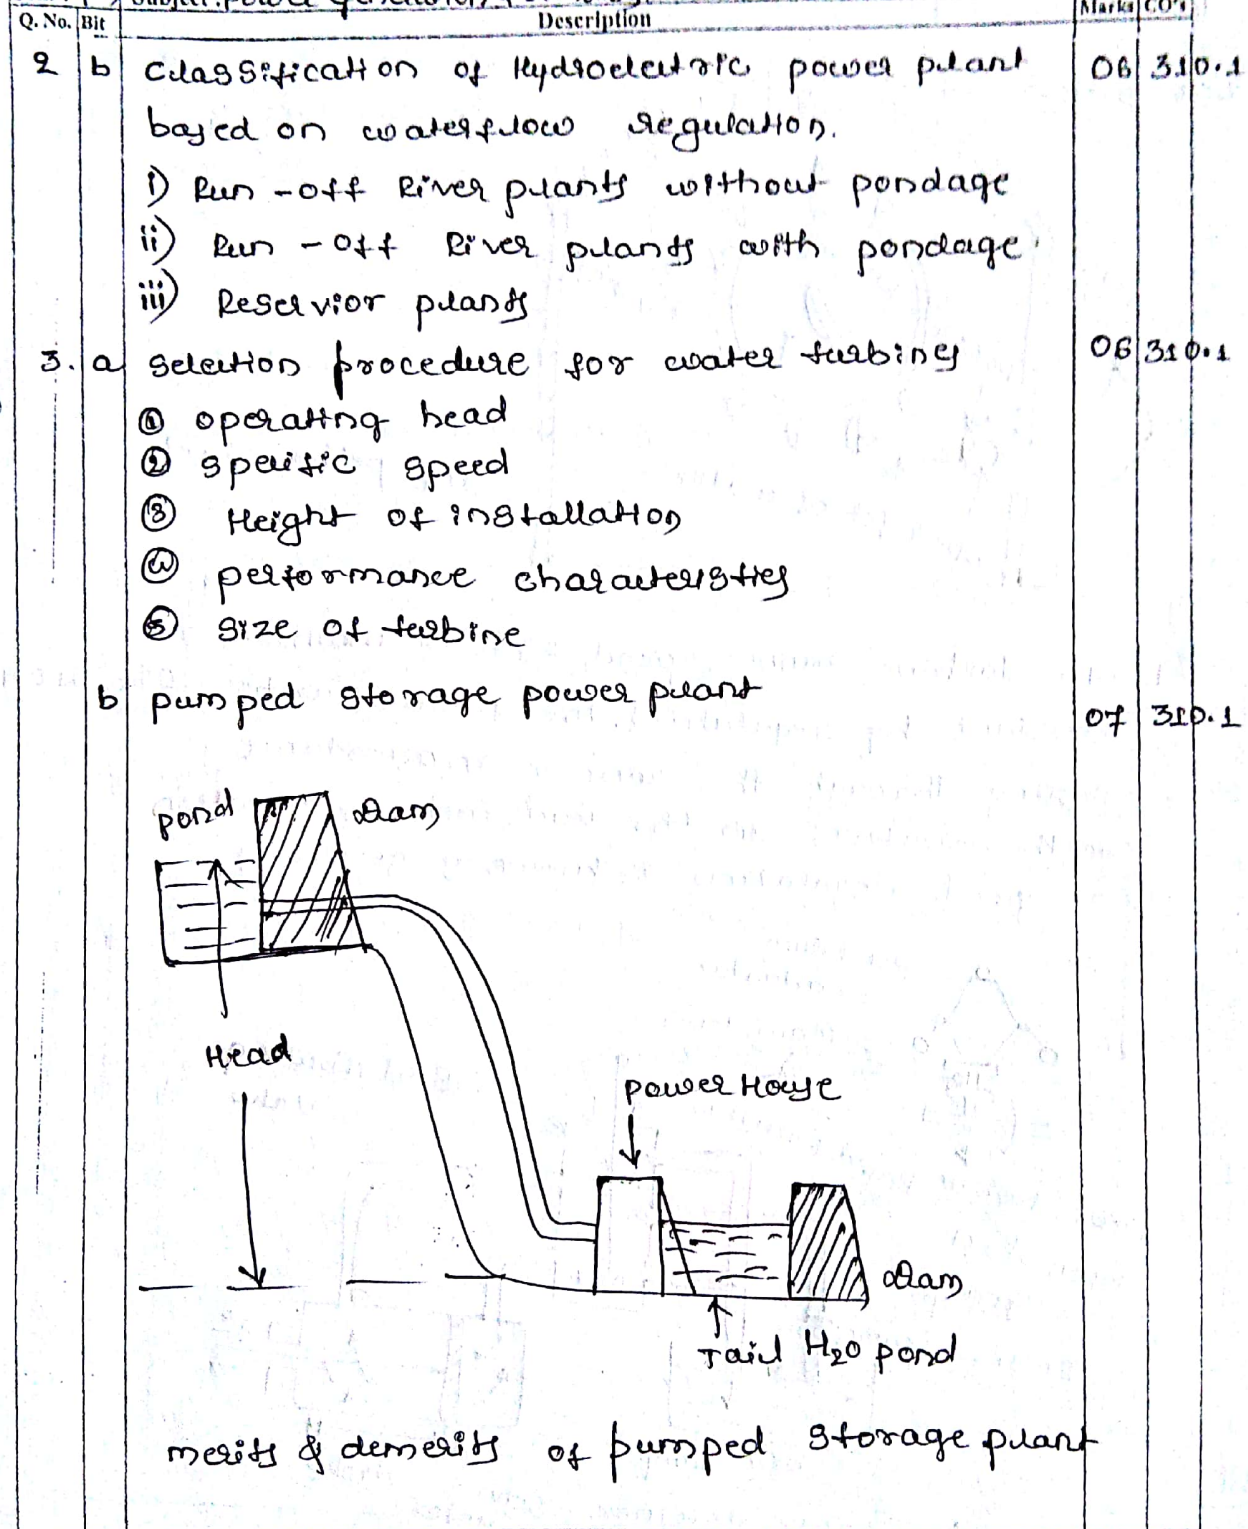 Q. No. Bit Description Marks CO's
2 b Classification of Hydroelectric power plant 06 310.1
based on waterflow regulation.
i) Run - off River plants without pondage
ii) Run - off River plants with pondage
iii) Reservior plants
3. a Selection procedure for water turbines 06 310.1
① operating head
② specific speed
③ Height of installation
④ performance characteristics
⑤ size of turbine
b pumped storage power plant 07 310.1
pond Dam
Head
power House
Dam
Tail H2O pond
merits & demerits of pumped storage plant